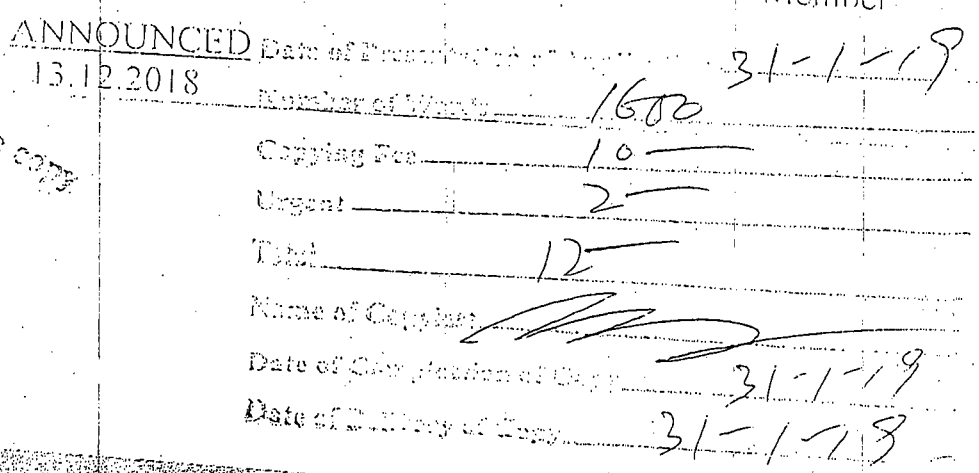 Member
ANNOUNCED
13.12.2018
Date of Presentation of 31-1-19
Number of Words 1600
copy
Copying Fee 10
Urgent 2
Total 12
Name of Copyist
Date of Completion of Copy 31-1-19
Date of Delivery of Copy 31-1-19